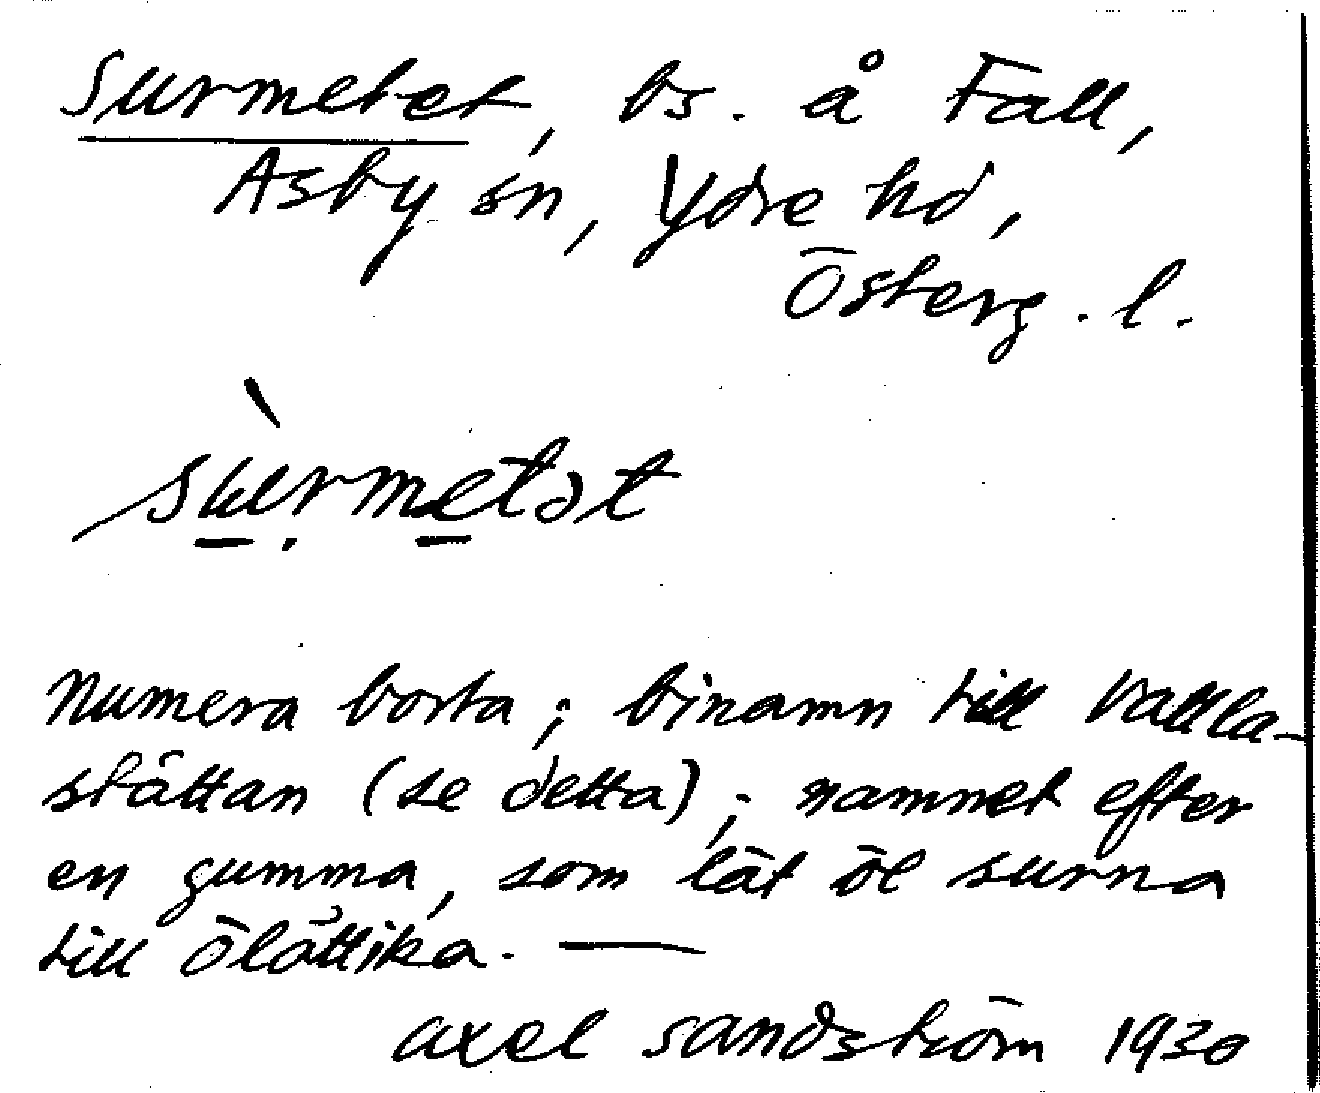 Surmetet, bs. å Fall,
Asby sn, Ydre hd,
Österg. l.
sùrmetət
Numera borta; binamn till Valla-
slättan (se detta); namnet efter
en gumma, som lät öl surna
till ölättika. —
Axel Sandström 1930